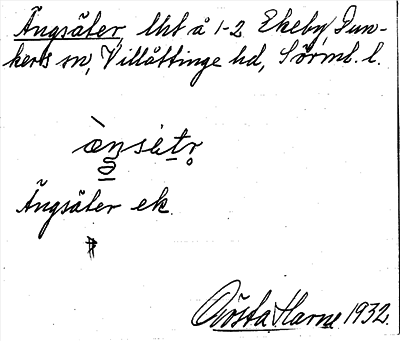 Ängsäter, lht å 1-2 Ekeby, Dun-
kers sn, Villåttinge hd, Sörml. l.
ængsètr
Ängsäter ek.
Gösta Harne 1932.